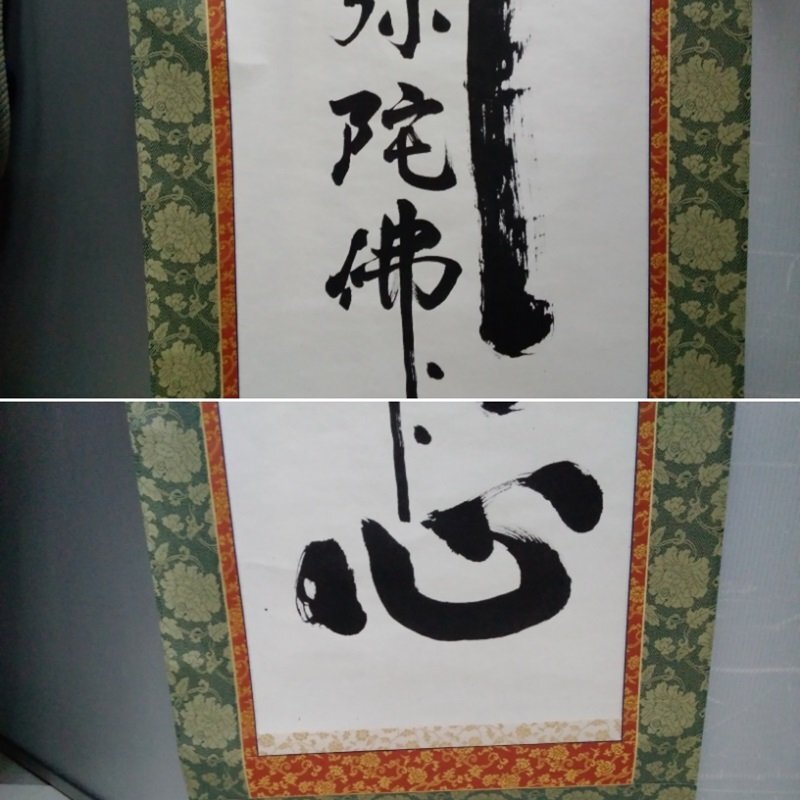 弥陀佛
心